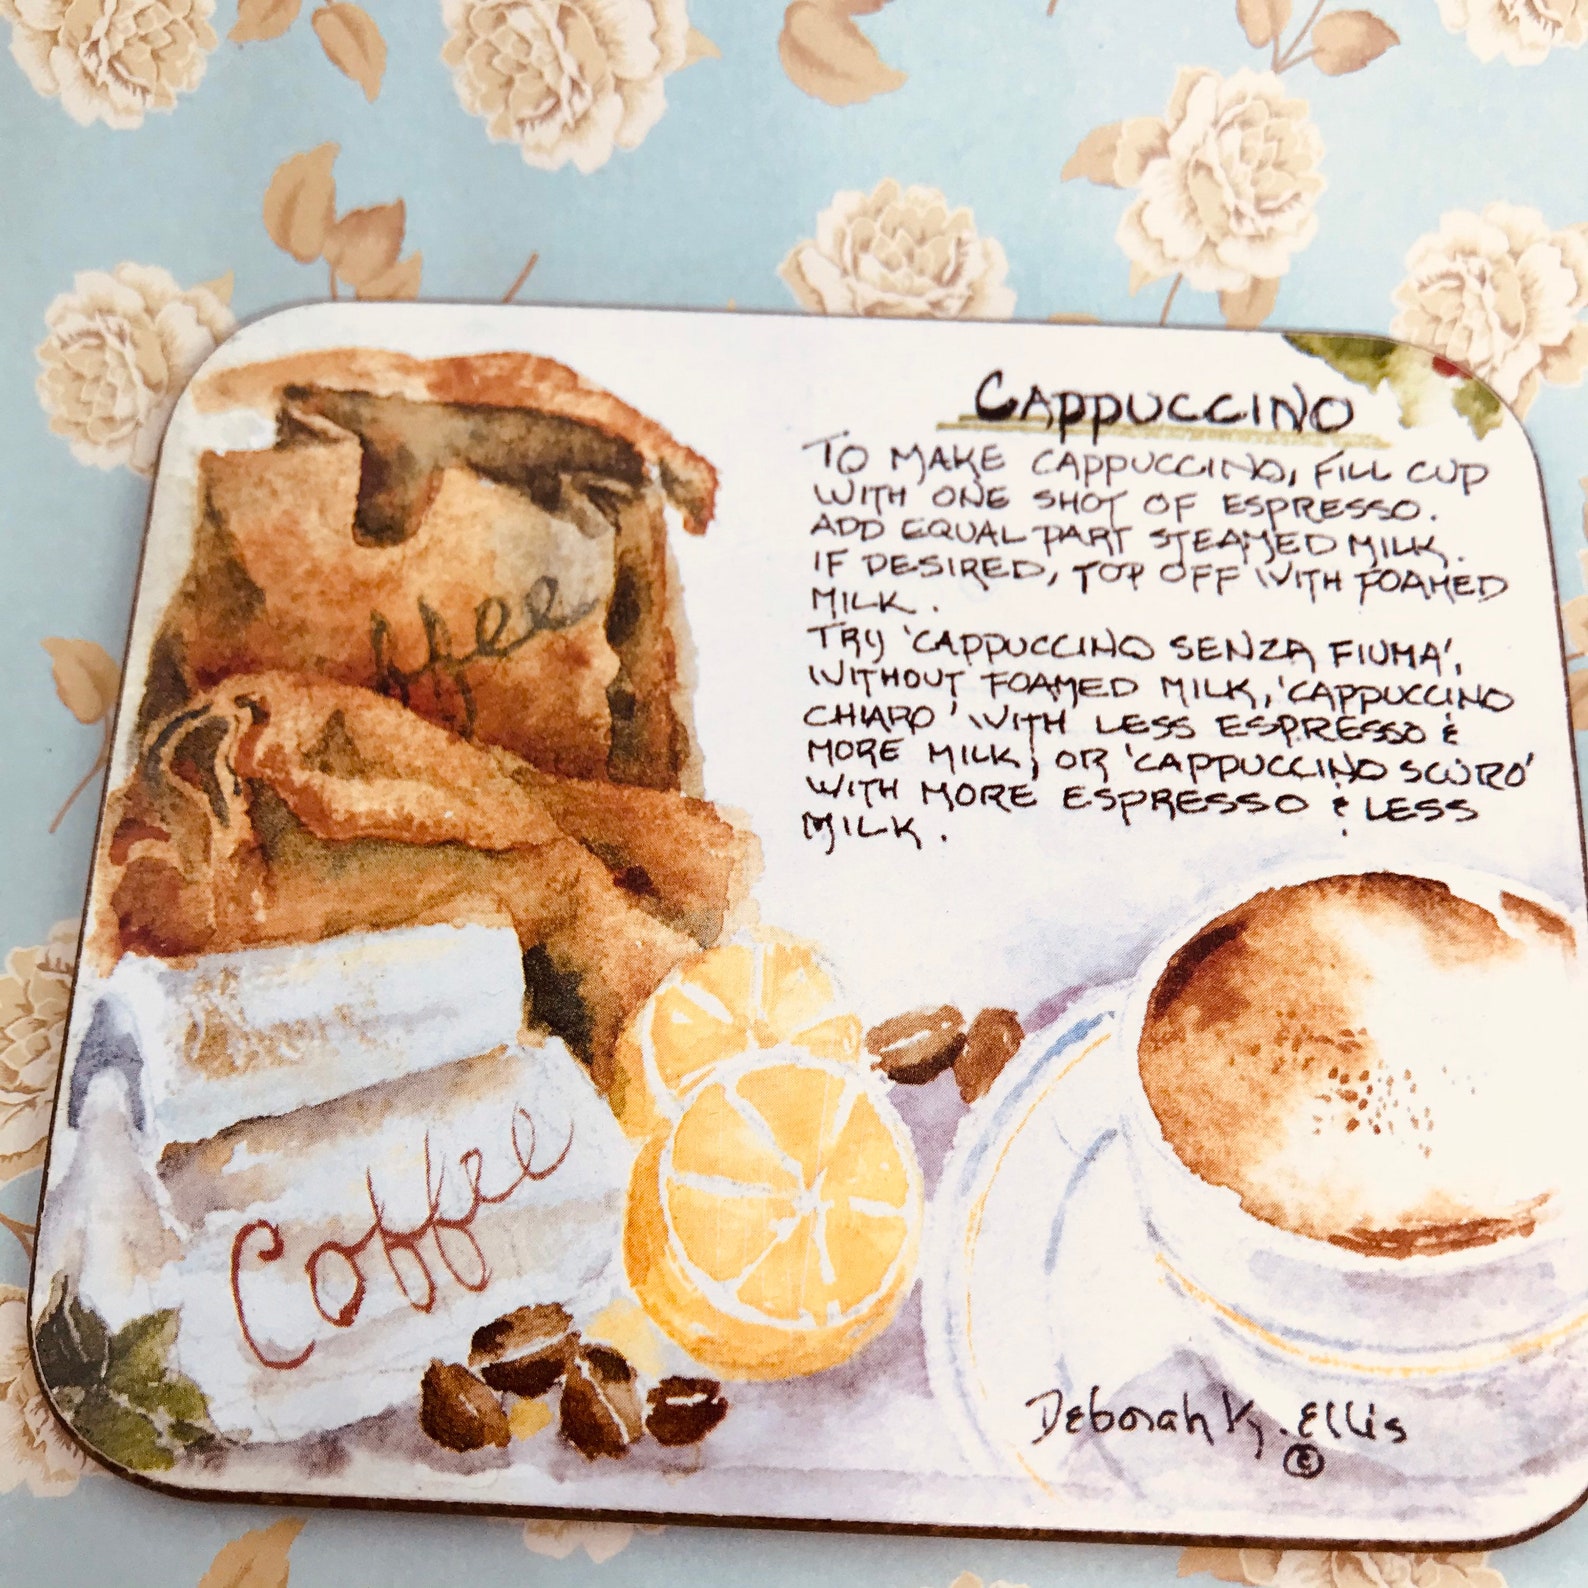 Cappuccino
TO MAKE CAPPUCCINO, FILL CUP
WITH ONE SHOT OF ESPRESSO.
ADD EQUAL PART STEAMED MILK.
IF DESIRED, TOP OFF WITH FOAMED
MILK.
TRY 'CAPPUCCINO SENZA FIUMA',
WITHOUT FOAMED MILK, 'CAPPUCCINO
CHIARO' WITH LESS ESPRESSO &
MORE MILK, OR 'CAPPUCCINO SCURO'
WITH MORE ESPRESSO & LESS
MILK.
offee
Coffee
Deborah K. Ellis
©